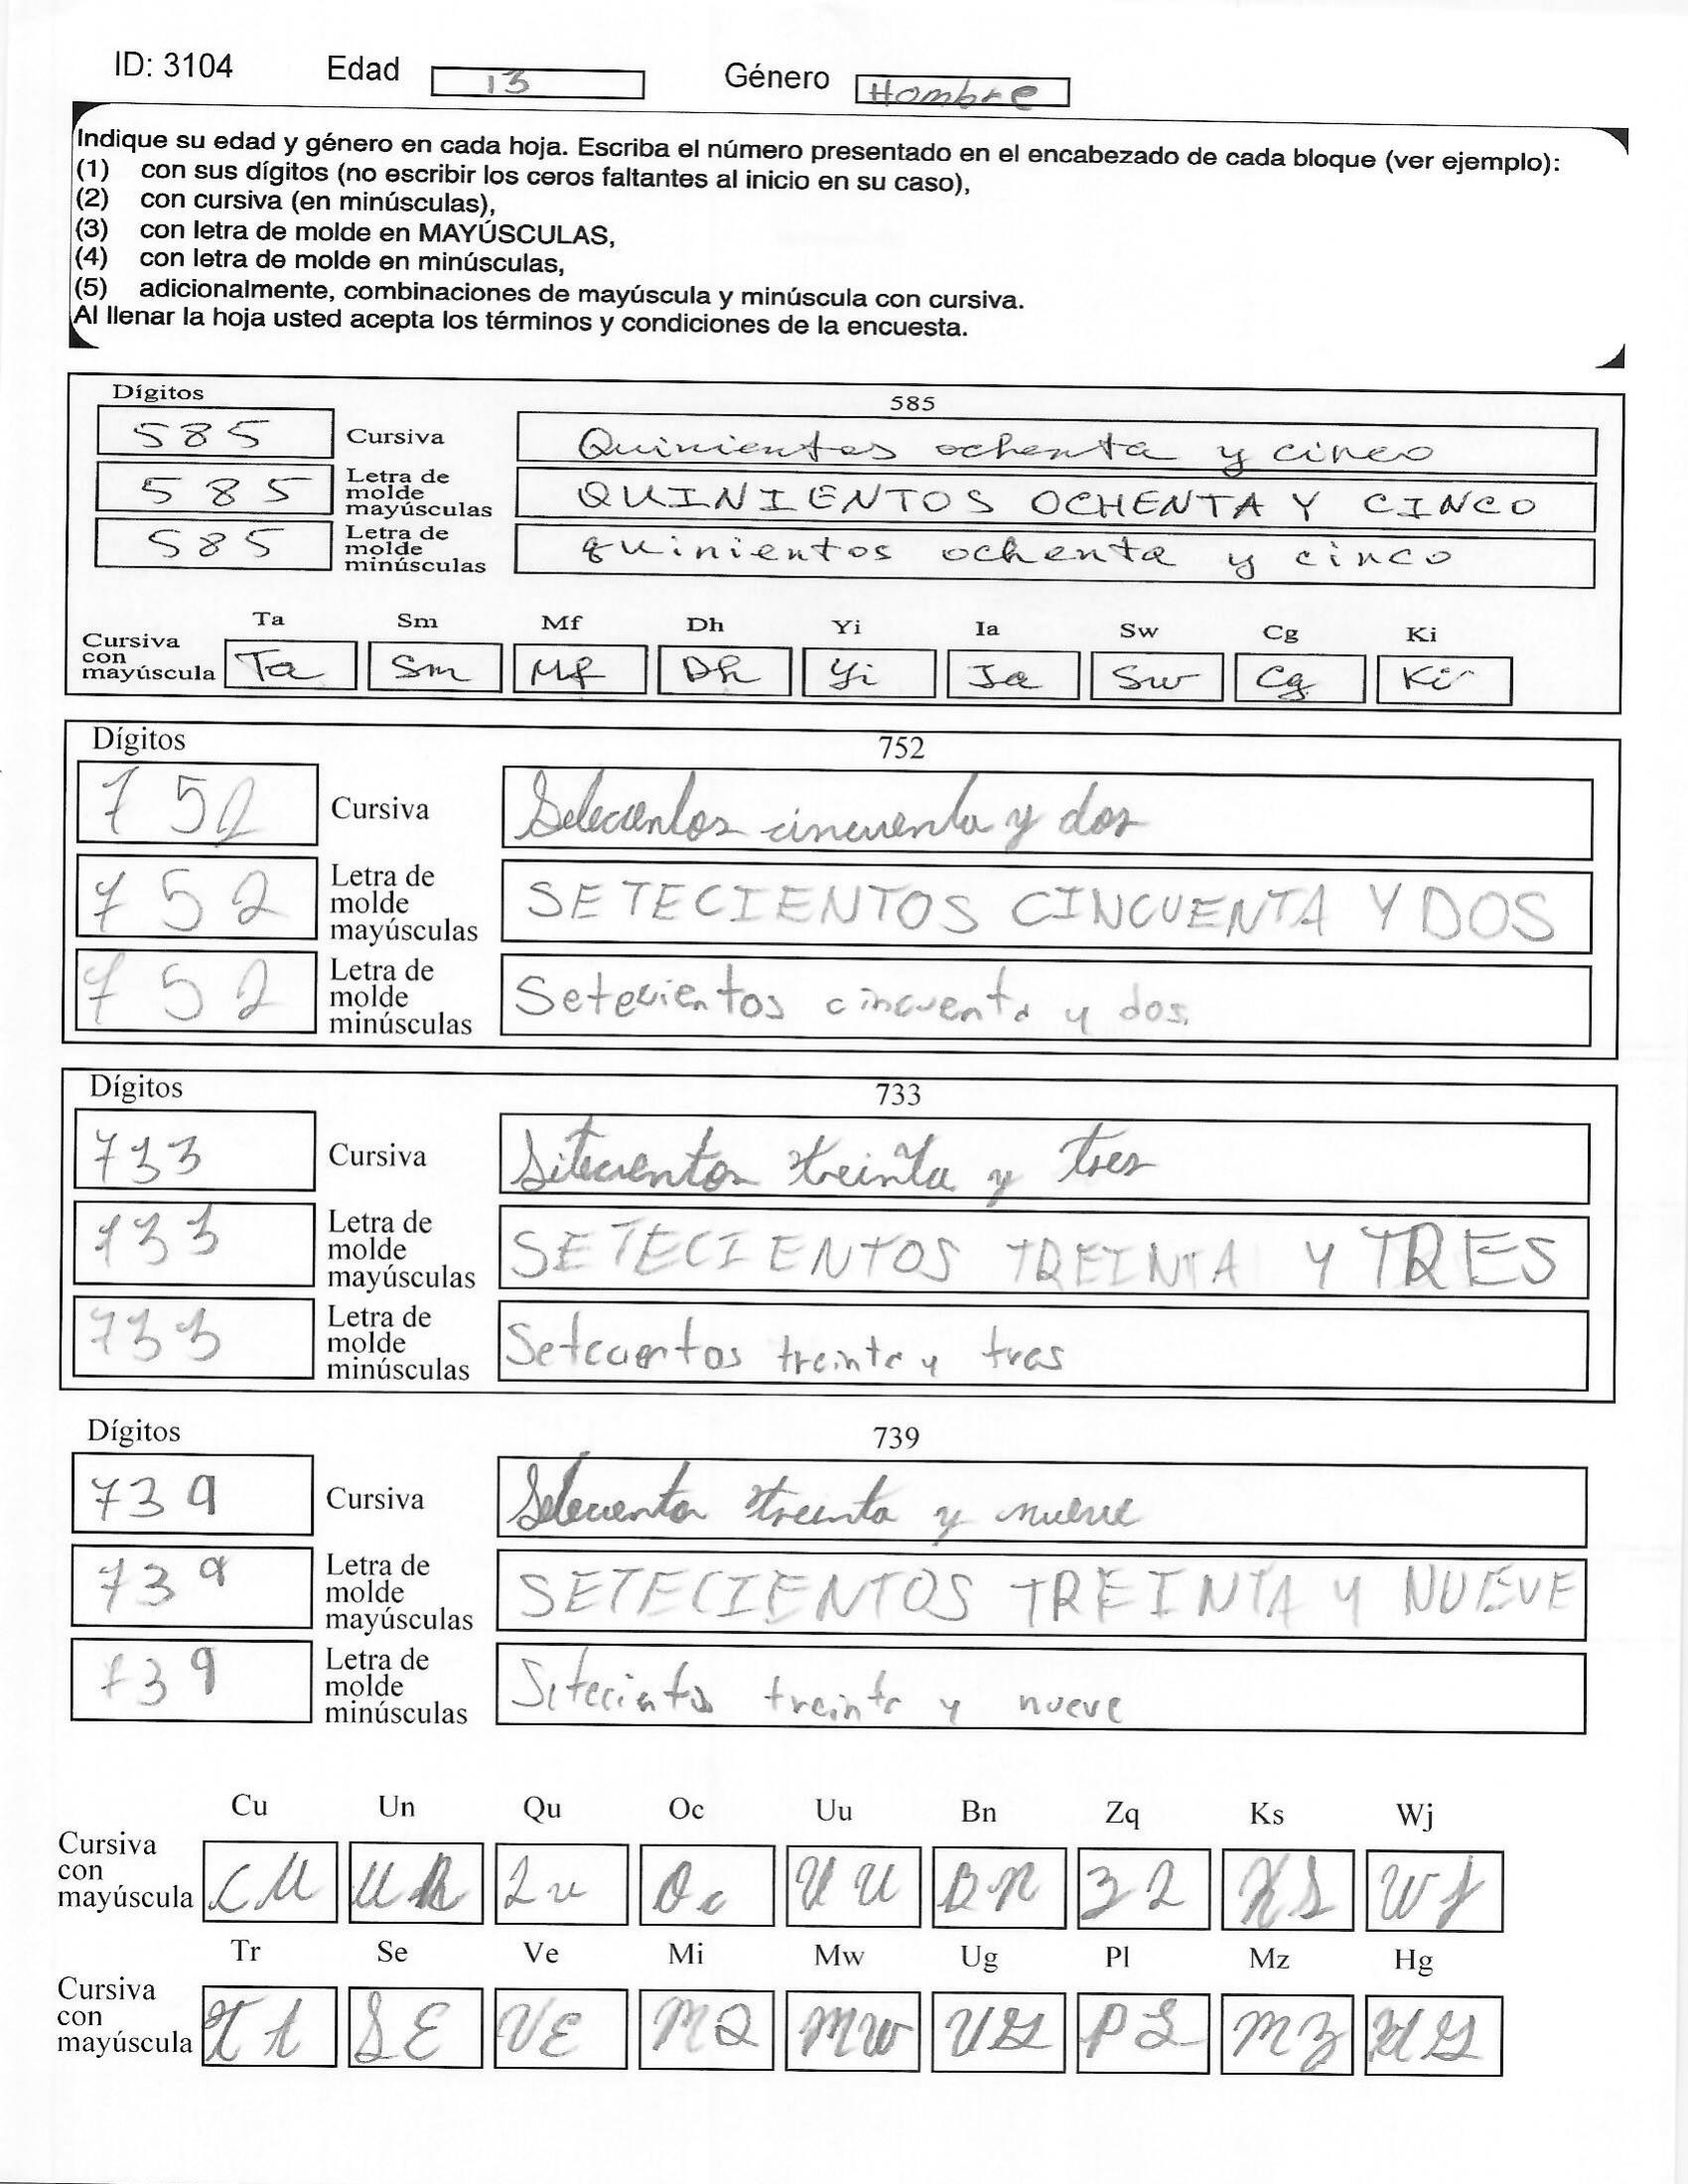 ID: 3104 Edad 13 Género Hombre
Indique su edad y género en cada hoja. Escriba el número presentado en el encabezado de cada bloque (ver ejemplo):
(1) con sus dígitos (no escribir los ceros faltantes al inicio en su caso),
(2) con cursiva (en minúsculas),
(3) con letra de molde en MAYÚSCULAS,
(4) con letra de molde en minúsculas,
(5) adicionalmente, combinaciones de mayúscula y minúscula con cursiva.
Al llenar la hoja usted acepta los términos y condiciones de la encuesta.
Dígitos 585
585 Cursiva Quinientos ochenta y cinco
585 Letra de molde mayúsculas QUINIENTOS OCHENTA Y CINCO
585 Letra de molde minúsculas quinientos ochenta y cinco
Ta Sm Mf Dh Yi Ia Sw Cg Ki
Cursiva con mayúscula Ta Sm Mf Dh Yi Ia Sw Cg Ki
Dígitos 752
752 Cursiva Setecientos cincuenta y dos
752 Letra de molde mayúsculas SETECIENTOS CINCUENTA Y DOS
752 Letra de molde minúsculas Setecientos cincuenta y dos
Dígitos 733
733 Cursiva Setecientos treinta y tres
733 Letra de molde mayúsculas SETECIENTOS TREINTA Y TRES
733 Letra de molde minúsculas treinta y tres
Dígitos 739
739 Cursiva treinta y nueve
739 Letra de molde mayúsculas SETECIENTOS TREINTA Y NUEVE
739 Letra de molde minúsculas treinta y nueve
Cu Un Qu Oc Uu Bn Zq Ks Wj
Cursiva con mayúscula CU UN Qu Oc UU BN ZQ KS WJ
Tr Se Ve Mi Mw Ug Pl Mz Hg
Cursiva con mayúscula SE VE MW UG PL MZ HG